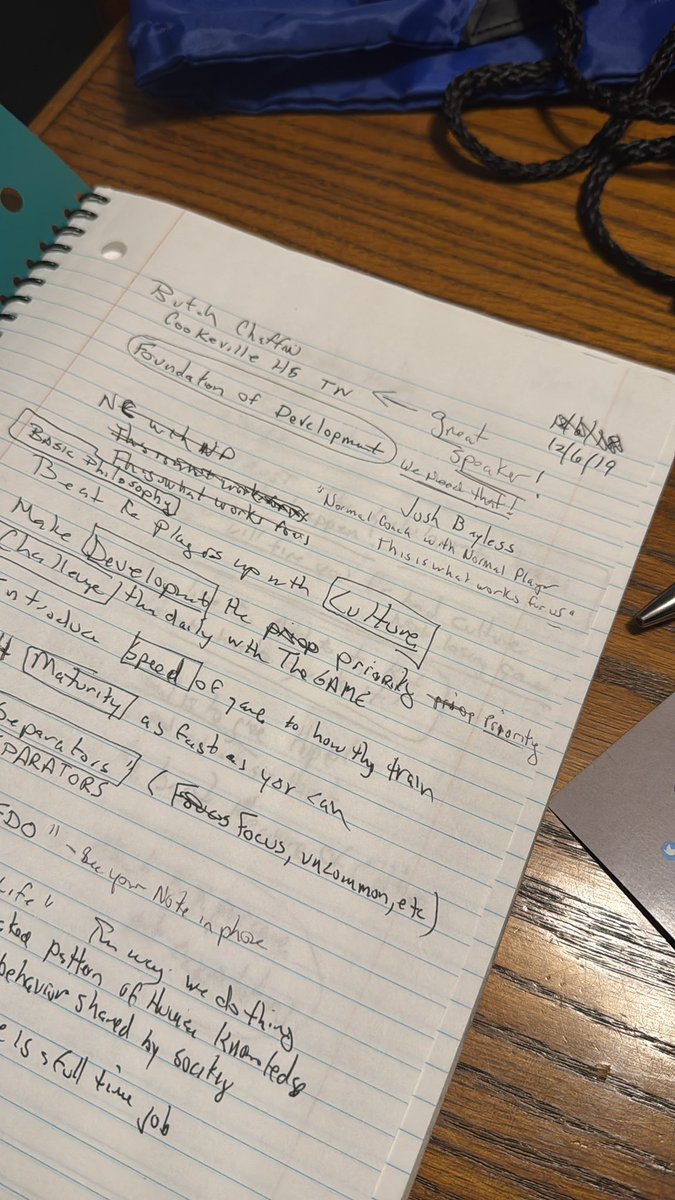 Butch Chaffin
Cookeville HS TN ← great
speaker!
12/6/19
Foundation of Development
we need that!
NC with NP
This is what works for us
Josh Bayless
"Normal Coach with Normal Player
This is what works for us"
Basic Philosophy
Beat the Players up with Culture
Make Development the priority Priority
Challenge the daily with The GAME
introduce speed of game to how thy train
Maturity as fast as you can
Separators (Focus, uncommon, etc)
EPARATORS
EDO" - See your Note in phone
Life" The way we do thing
pattern of Human Knowledge
behavior shared by society
e is a full time job